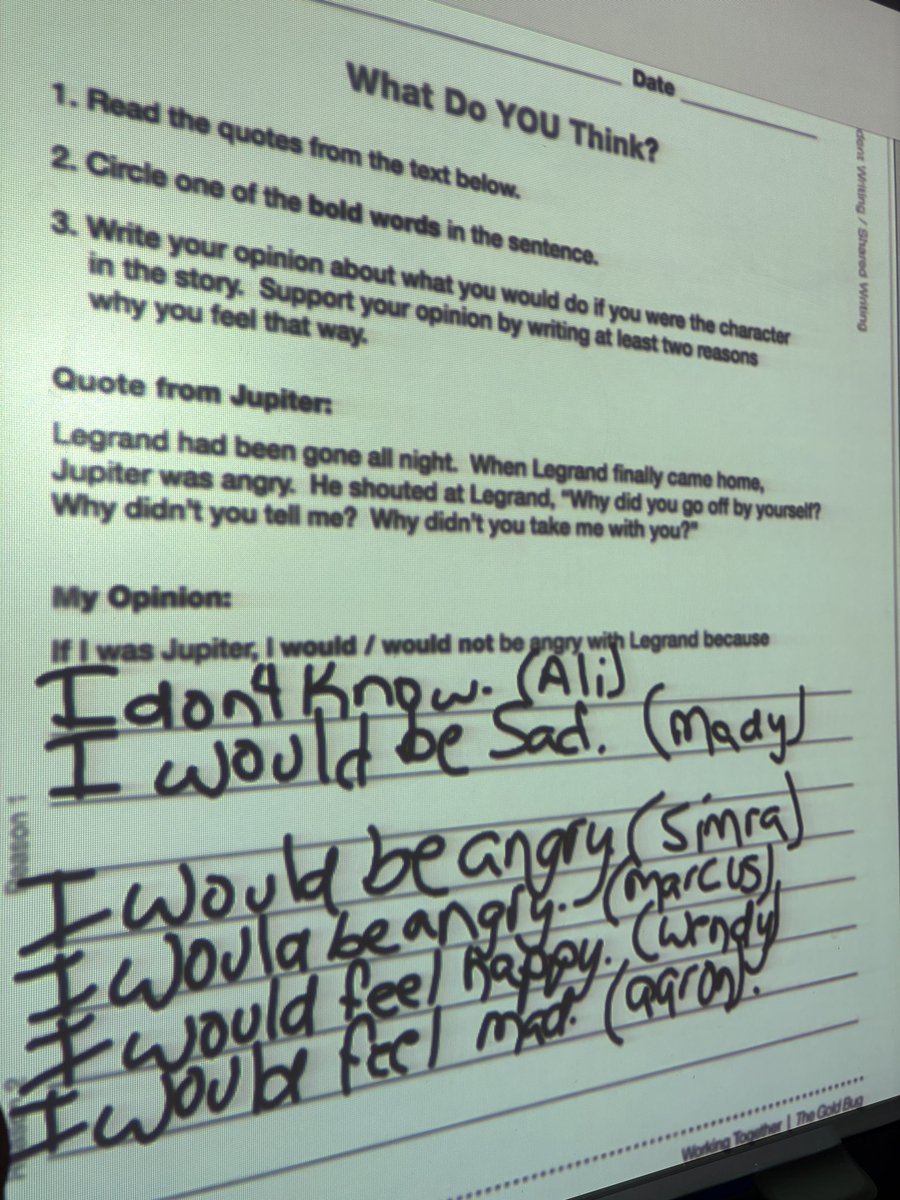 Date
What Do YOU Think?
1. Read the quotes from the text below.
2. Circle one of the bold words in the sentence.
3. Write your opinion about what you would do if you were the character
in the story. Support your opinion by writing at least two reasons
why you feel that way.
Quote from Jupiter:
Legrand had been gone all night. When Legrand finally came home,
Jupiter was angry. He shouted at Legrand, "Why did you go off by yourself?
Why didn't you tell me? Why didn't you take me with you?"
My Opinion:
If I was Jupiter, I would / would not be angry with Legrand because
I don't know. (Ali)
I would be Sad. (Mady)
I would be angry (Simra)
I would be angry. (Marcus)
I would feel happy. (Wendy)
I would feel mad. (aaron).
Reason 1
Working Together | The Gold Bug
Writing / Shared Writing